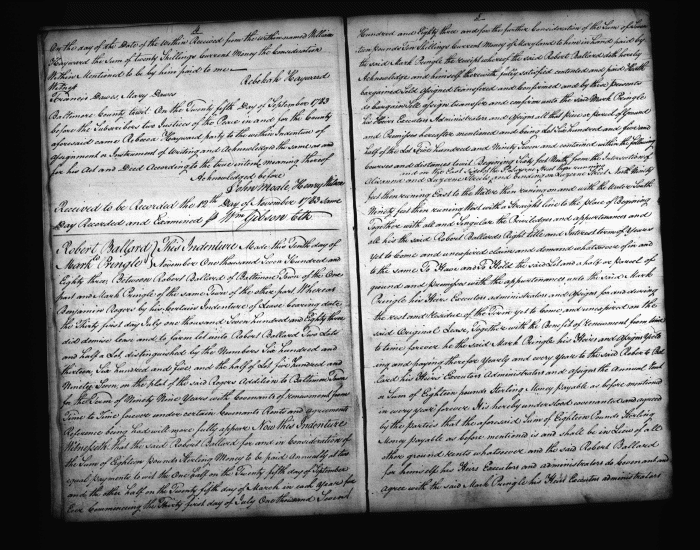 On the day of the Date of the Within Received from the within named William
Hayward the Sum of twenty Shillings Current Money the Consideration
Within Mentioned to be by him paid to me
Rebekah Hayward
Witness
Francis Dawes Mary Dawes
Baltimore County Court On the Twenty fifth Day of September 1783
before the Subscribers two Justices of the Peace in and for the County
aforesaid came Rebecca Hayward party to the within Indenture of
Assignment or Instrument of Writing and Acknowledged the same as and
for her Act and Deed According to the true intent meaning thereof
Acknowledged before
John Moale Henry Wilson
Received to be Recorded the 12th Day of November 1783 Same
Day Recorded and Examined p Wm Gibson Clk
Robert Ballard } This Indenture Made this Tenth day of
Mark Pringle } November One thousand Seven Hundred and
Eighty three, Between Robert Ballard of Baltimore Town of the One
part and Mark Pringle of the same Town of the other part Whereas
Benjamin Rogers by his certain Indenture of Lease bearing date
the Thirty first day July one thousand Seven hundred and Eighty three
did demise lease and to farm let unto Robert Ballard Two Lots
and half a Lot, distinguished by the Numbers Six hundred and
thirteen, Six Hundred and five, and the half of Lot five Hundred and
Ninety Seven, on the plot of the said Rogers Addition to Baltimore Town
for the Term of Ninety Nine Years with Covenants of renewment from
Time to Time forever under certain Covenants Rents and agreements
Reference being had will more fully appear Now this Indenture
Witnesseth that the said Robert Ballard for and in Consideration of
the Sum of Eighteen pounds Sterling Money to be paid Annually at two
equal payments to wit the One half on the Twenty fifth day of September
and the other half on the Twenty fifth day of March in each Year for
Ever Commencing the Thirty first day of July One thousand Seven
Hundred and Eighty three and for the further Consideration of the Sum of
pounds Ten Shillings Current Money of Maryland to him in hand paid by
the said Mark Pringle the receipt whereof the said Robert Ballard doth hereby
Acknowledge and himself therewith fully satisfied contented and paid Hath
bargained Sold Assigned transferred and confirmed and by these presents
do bargain Sell Assign transfer and confirm unto the said Mark Pringle
his Heirs Executors Administrators and Assigns all that piece or parcel of Ground
and Premises hereafter mentioned and being Lot Six hundred and five and
half of the Lot Five hundred and Ninety Seven and contained within the following
courses and distances to wit. Beginning Sixty feet North from the Intersection of
and on the East Side of the
feet then running East to the Water then running on and with the Water South
Ninety feet then running West with a Straight line to the place of Beginning
Together with all and Singular the Priviledges and appurtenances and
all his the said Robert Ballards Right title and Interest term of Years
yet to come and unexpired claim and demand whatsoever of in and
to the same To Have and To Hold the said Lot and half or parcel of
ground and premises with the appurtenances unto the said Mark
Pringle his Heirs Executors administrators and Assigns for and during
the rest and Residue of the Term yet to come and unexpired in the
said Original Lease, Together with the Benefit of Renewment from time
to time forever he the said Mark Pringle his Heirs and Assigns yeild
ing and paying therefor Yearly and every Year to the said Robert Bal
lard his Heirs Executors Administrators and Assigns the Annual Rent
or Sum of Eighteen pounds Sterling Money payable as before mentioned
in every year forever It is hereby understood covenanted and agreed
by the parties that the aforesaid Sum of Eighteen Pounds Sterling
Money payable as before mentioned is and shall be in Lieu of all
other ground rents whatsoever, and the said Robert Ballard
for himself his Heirs Executors and administrators do Covenant and
agree with the said Mark Pringle his Heirs Executors administrators